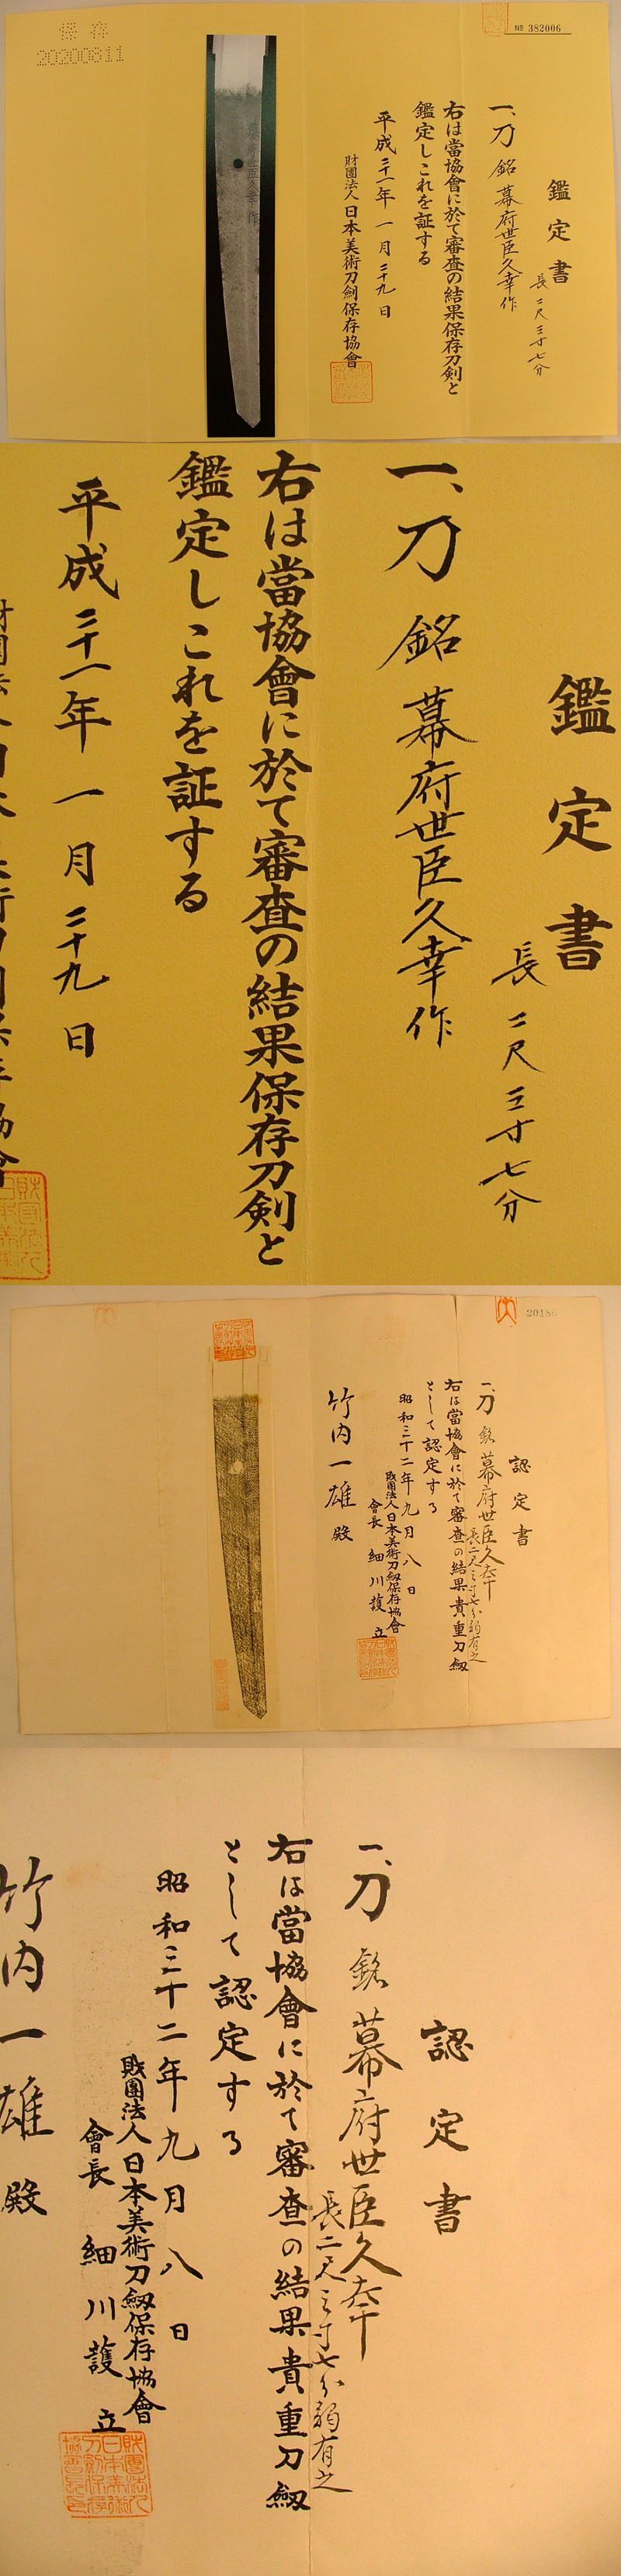 保存
20200611
№ 382006
鑑定書
一、刀 銘 幕府世臣久幸作
長二尺三寸七分
右は當協會に於て審査の結果保存刀剣と
鑑定しこれを証する
平成二十一年 一月 二十九日
財團法人日本美術刀剣保存協會
鑑定書
長二尺三寸七分
一、刀 銘 幕府世臣久幸作
右は當協會に於て審査の結果保存刀剣と
鑑定しこれを証する
平成二十一年 一月 二十九日
認定書
一、刀 銘 幕府世臣久幸
長二尺三寸七分弱有之
右は當協會に於て審査の結果貴重刀剱
として認定する
昭和三十二年九月八日
財團法人日本美術刀剱保存協會
會長 細川護立
竹内一雄殿
認定書
一、刀 銘 幕府世臣久幸
長二尺三寸七分弱有之
右は當協會に於て審査の結果貴重刀剱
として認定する
昭和三十二年九月八日
財團法人日本美術刀剱保存協會
會長 細川護立
竹内一雄殿